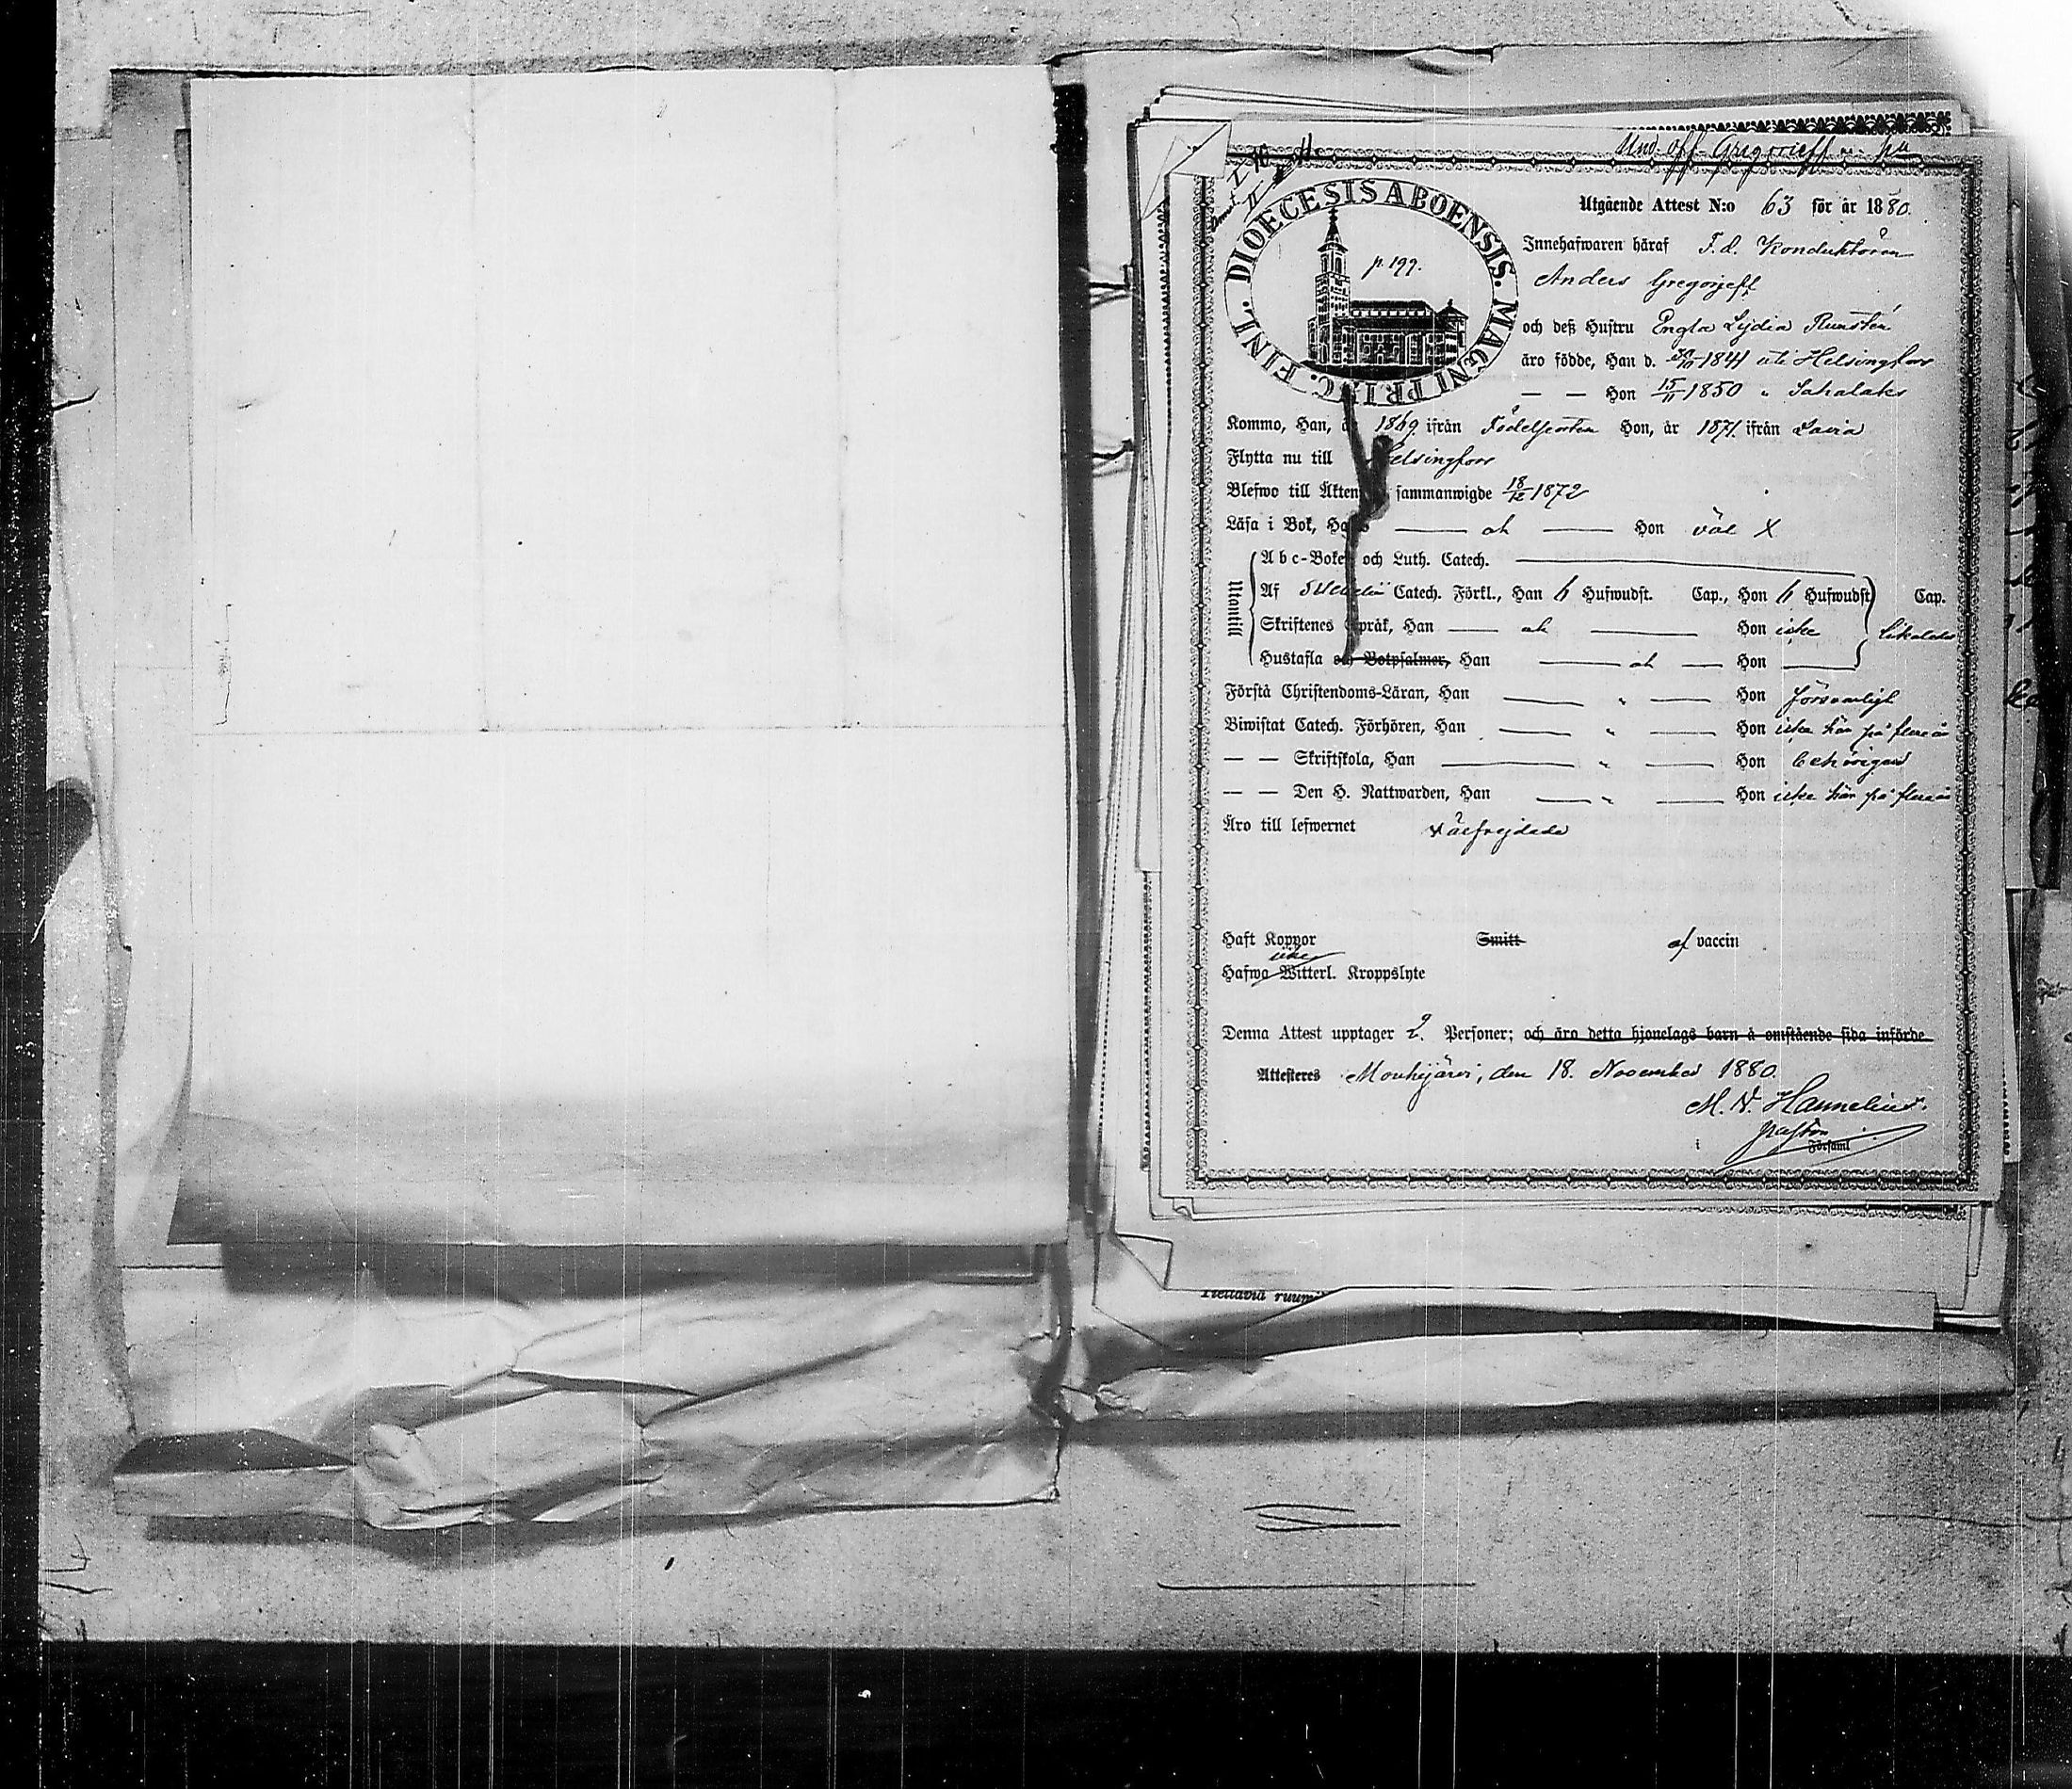 Und. off. Gregorieff m. fru
DIOECESIS ABOENSIS. MAGNI PRINC. FINL.
p. 199.
Utgående Attest N:o 63 för år 1880.
Innehafwaren häraf F. d. Konduktören
Anders Gregorjeff
och deß Hustru Engla Lydia Runstén
äro födde, Han d. 1841 uti Helsingfors
— — Hon 15/11 1850 " Sahalaks
Kommo, Han, år 1869 ifrån Födelseorten Hon, år 1871 ifrån Lavia
Flytta nu till Helsingfors
Blefwo till Äkten sammanwigde 18/12 1872
Läsa i Bok, Han — ok — Hon väl X
Utantill
Abc-Boken och Luth. Catech. —
Af Svebelii Catech. Förkl., Han 6 Hufwudst. Cap., Hon 6 Hufwudst Cap.
Skriftenes Språk, Han — ok — Hon icke
Hustafla och Botpsalmer, Han — ok — Hon —
Förstå Christendoms-Läran, Han — " — Hon försvarligt
Biwistat Catech. Förhören, Han — " — Hon icke här på flere år
— — Skriftskola, Han — " — Hon behörigen
— — Den H. Nattwarden, Han — " — Hon icke här på flere år
Äro till lefwernet välfrejdade
Haft Koppor Smitt af vaccin
icke
Hafwa Witterl. Kroppslyte
Denna Attest upptager 2. Personer; och äro detta hjonelags barn å omstående sida införde
Attesteres Mouhijärvi, den 18. November 1880.
M. W. Hannelius.
pastor
i Församl